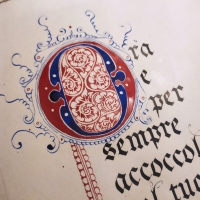 Ora
e
per
sempre
accoccol
tuo